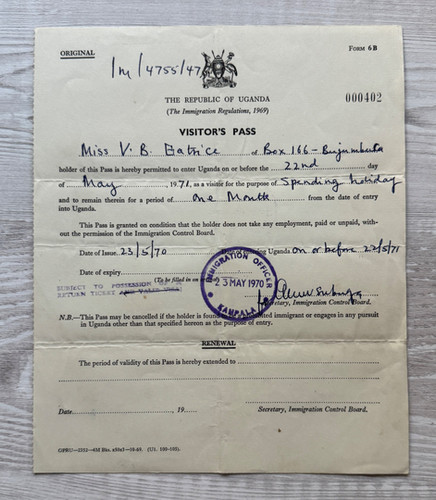 ORIGINAL
FORM 6B
1m/4755/47
000402
THE REPUBLIC OF UGANDA
(The Immigration Regulations, 1969)
VISITOR'S PASS
Miss V. B. Eatrice of Box 166 – Bujumbura
holder of this Pass is hereby permitted to enter Uganda on or before the 22nd day
of May, 1971, as a visitor for the purpose of Spending holiday
and to remain therein for a period of one Month from the date of entry
into Uganda.
This Pass is granted on condition that the holder does not take any employment, paid or unpaid, with-
out the permission of the Immigration Control Board.
Date of Issue 23/5/70 Uganda on or before 22/5/71
Date of expiry
(To be filled in on
SUBJECT TO POSSESSION
RETURN TICKET AND VALID
IMMIGRATION OFFICER
23 MAY 1970
KAMPALA
Secretary, Immigration Control Board.
N.B.—This Pass may be cancelled if the holder is found immigrant or engages in any pursuit
in Uganda other than that specified hereon as the purpose of entry.
RENEWAL
The period of validity of this Pass is hereby extended to
Date, 19
Secretary, Immigration Control Board.